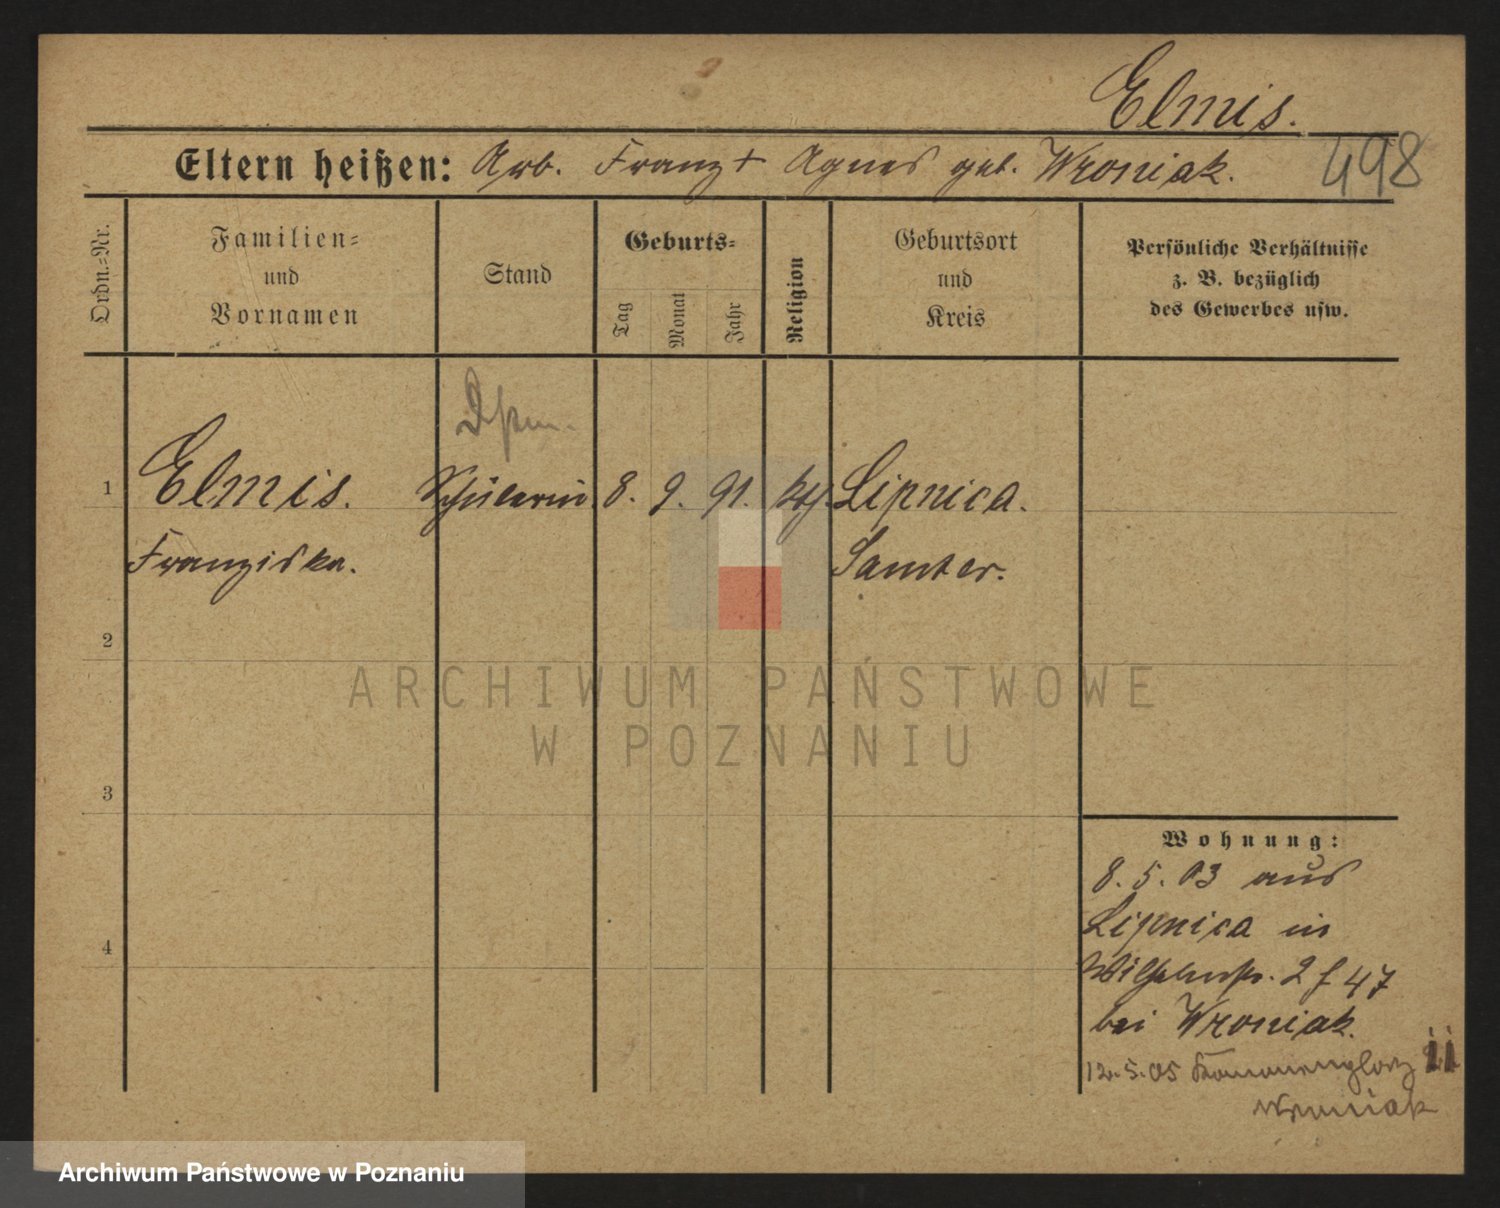 Elmis.
Eltern heißen: Arb. Franz + Agnes geb. Wroniak. 498
Ordn.=Nr.
Familien=
und
Vornamen
Stand
Geburts=
Tag
Monat
Jahr
Religion
Geburtsort
und
Kreis
Persönliche Verhältnisse
z. B. bezüglich
des Gewerbes usw.
1 Elmis. Schülerin. 8. 9. 91. kth. Lipnica.
Franziska. Samter.
2
3
4
Wohnung:
8. 5. 03 aus
Lipnica in
Wilhelmstr. 2 f 47
bei Wroniak.
12.5.05 11
Wroniak
ARCHIWUM PAŃSTWOWE
W POZNANIU
Archiwum Państwowe w Poznaniu